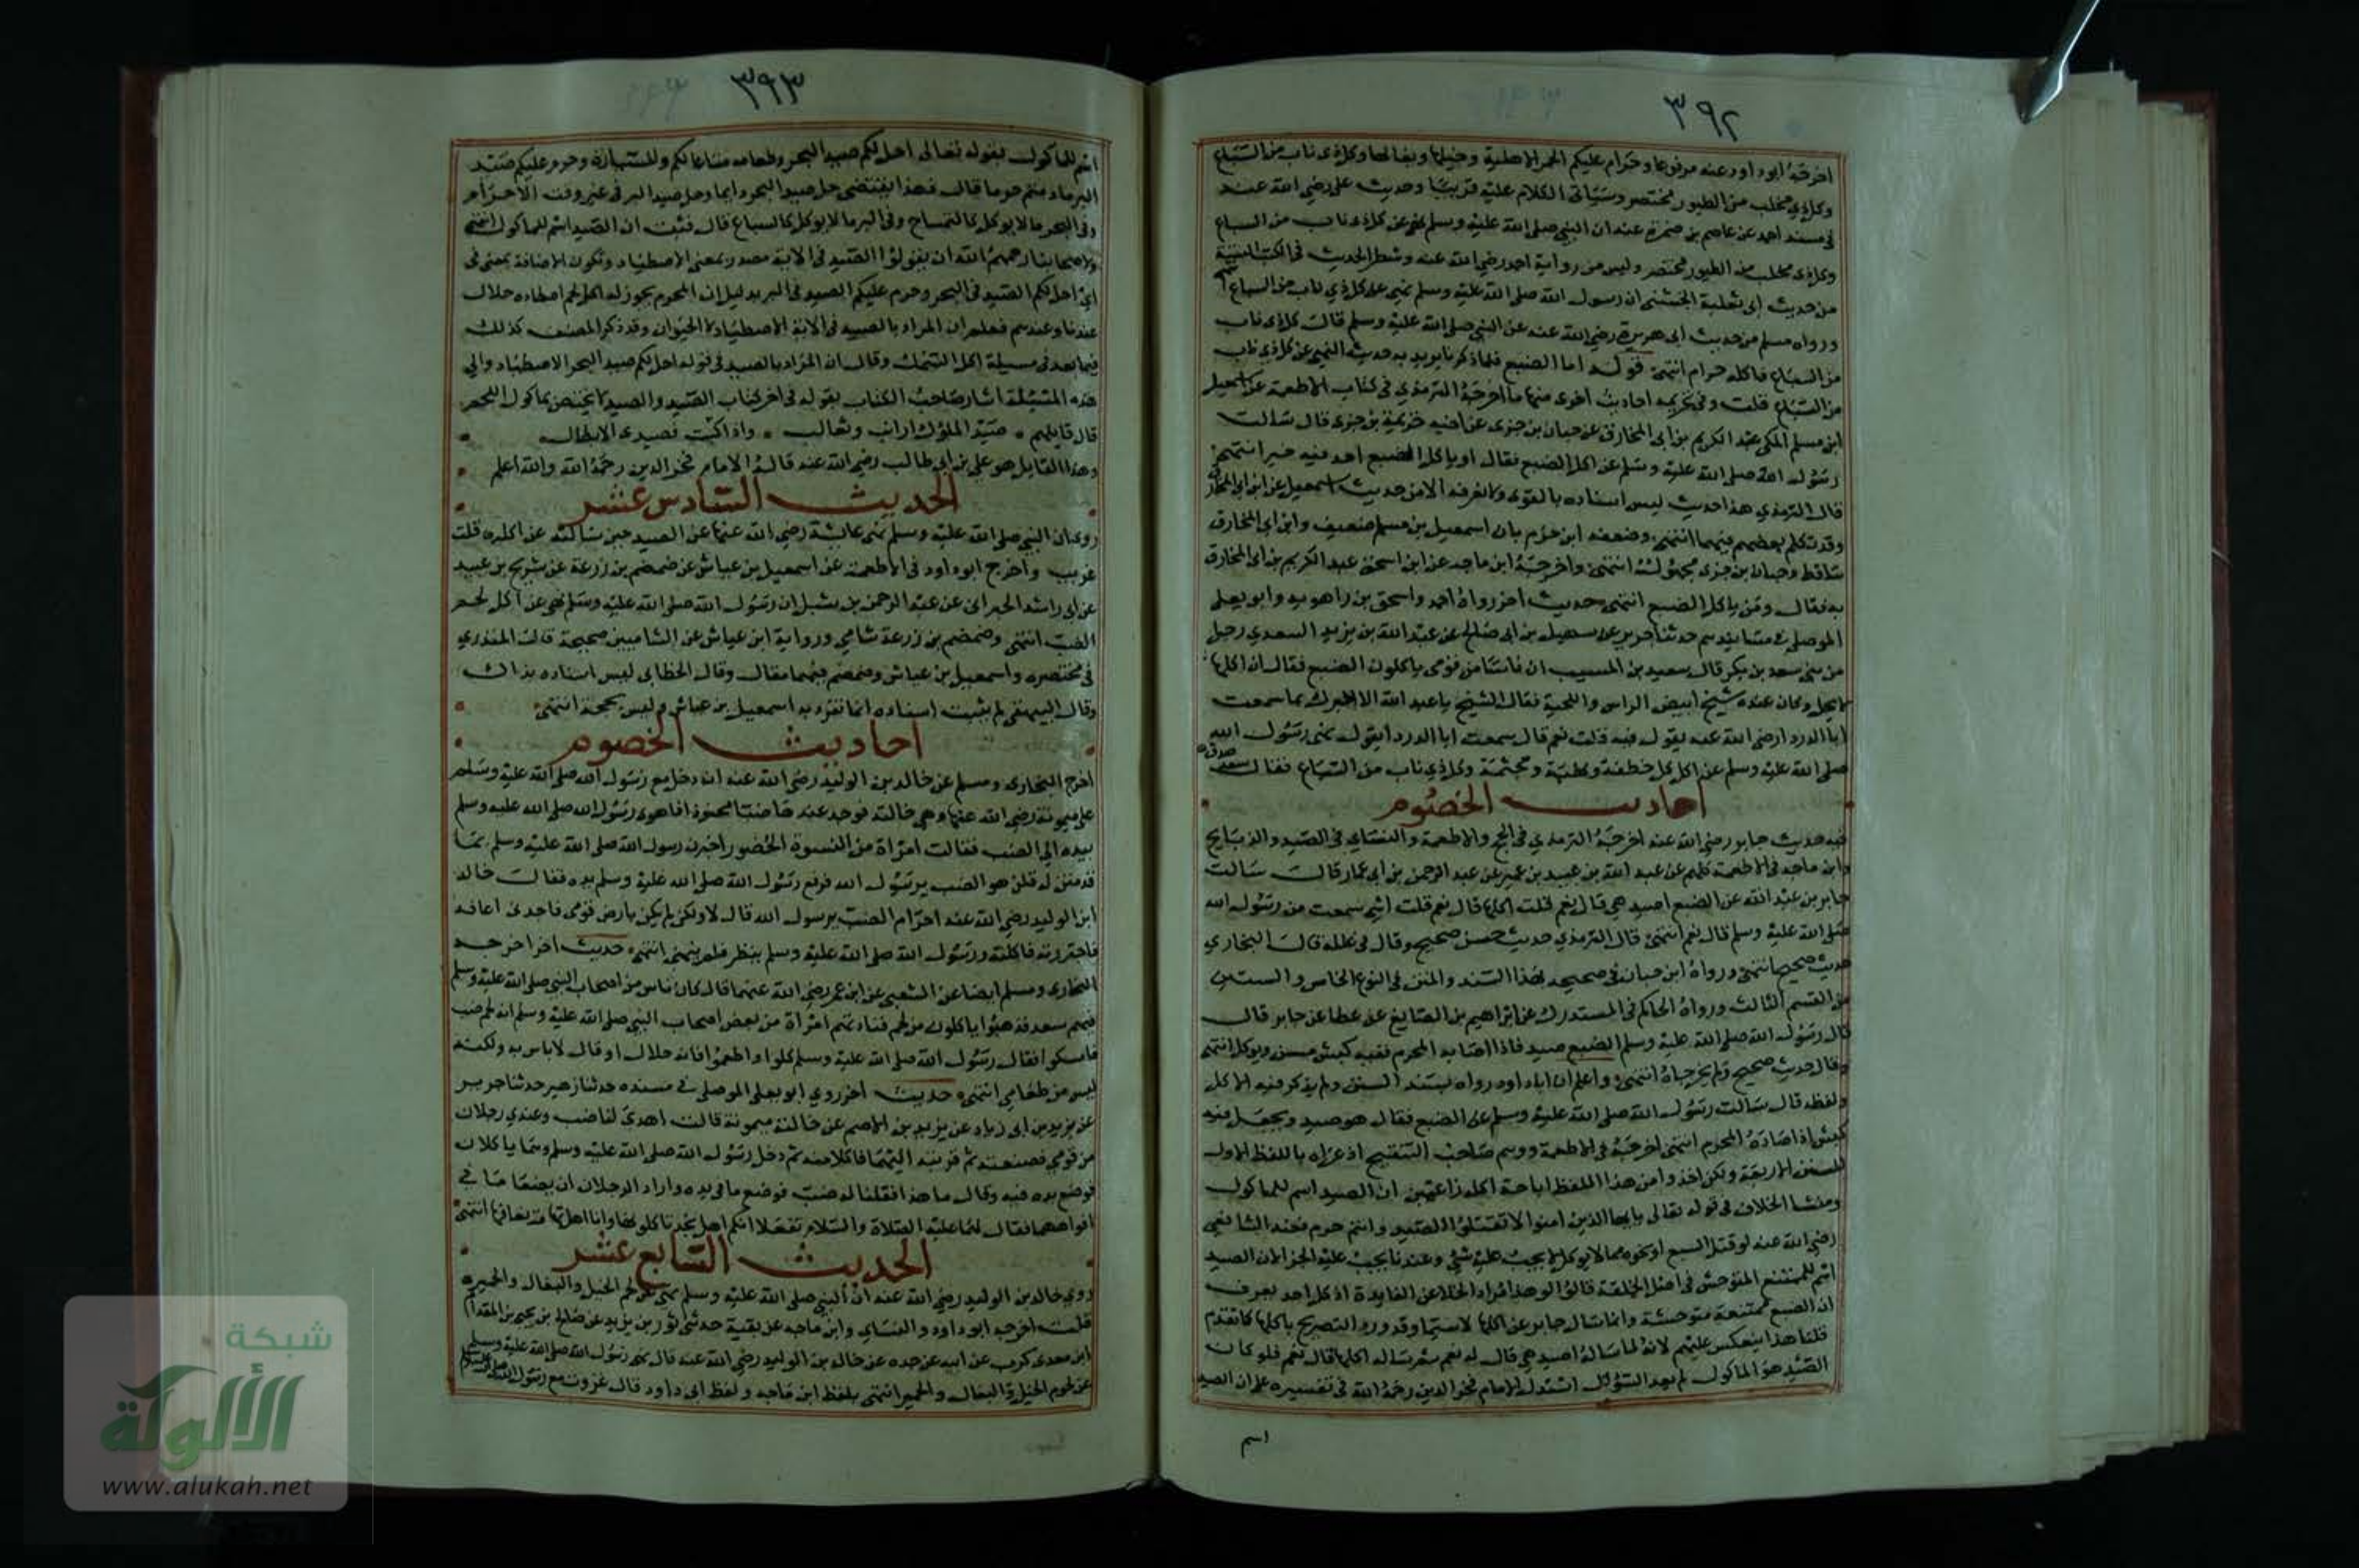 ٣٩٢
اخرجه ابو داود عنه مرفوعا وحرام عليكم الحمر الاهلية وخيلها وبغالها وكل ذي ناب من السباع
وكل ذي مخلب من الطيور مختصر وسياتي الكلام عليه قريبا وحديث علي رضي الله عنه
في مسند احمد عن عاصم بن ضمرة عنه ان النبي صلى الله عليه وسلم نهى عن كل ذي ناب من السباع
وكل ذي مخلب من الطيور مختصر وليس من رواية احمد رضي الله عنه وشطر الحديث في الكتب الستة
من حديث ابي ثعلبة الخشني ان رسول الله صلى الله عليه وسلم نهى عن كل ذي ناب من السباع
ورواه مسلم من حديث ابي هريرة رضي الله عنه عن النبي صلى الله عليه وسلم قال كل ذي ناب
من السباع فاكله حرام انتهى قوله اما الضبع فلما ذكرنا يريد به حديث النهي عن كل ذي ناب
من السباع قلت وفي تحريمه احاديث اخرى منها ما اخرجه الترمذي في كتاب الاطعمة عن اسمعيل
ابن مسلم المكي عن عبد الكريم بن ابي المخارق عن حبان بن جزى عن اخيه خزيمة بن جزى قال سالت
رسول الله صلى الله عليه وسلم عن اكل الضبع فقال او ياكل الضبع احد فيه خير انتهى
قال الترمذي هذا حديث ليس اسناده بالقوى ولا نعرفه الا من حديث اسمعيل عن ابن ابي المخارق
وقد تكلم بعضهم فيهما انتهى وضعفه ابن حزم بان اسمعيل بن مسلم ضعيف وابن ابي المخارق
ساقط وحبان بن جزى مجهول انتهى واخرجه ابن ماجه عن ابن اسحق عن عبد الكريم بن ابي المخارق
به فقال ومن ياكل الضبع انتهى حديث اخر رواه احمد واسحق بن راهويه وابو يعلى
الموصلي في مسانيدهم حدثنا جرير عن سهيل بن ابي صالح عن عبد الله بن يزيد السعدي رجل
من بني سعد بن بكر قال سعيد بن المسيب ان ناسا من قومي ياكلون الضبع فقال ان اكلها
لا يحل وكان عنده شيخ ابيض الراس واللحية فقال الشيخ يا عبد الله الا اخبرك بما سمعت
ابا الدردا رضي الله عنه يقول فيه قلت نعم قال سمعت ابا الدردا يقول نهى رسول الله
صلى الله عليه وسلم عن اكل كل خطفة ونهبة ومجثمة وكل ذي ناب من السباع فقال سعيد صدق
احاديث الخصوم
فيه حديث جابر رضي الله عنه اخرجه الترمذي في الحج والاطعمة والنسائي في الصيد والذبايح
وابن ماجه في الاطعمة كلهم عن عبد الله بن عبيد بن عمير عن عبد الرحمن بن ابي عمار قال سالت
جابر بن عبد الله عن الضبع اصيد هي قال نعم قلت اكلها قال نعم قلت اشي سمعت من رسول الله
صلى الله عليه وسلم قال نعم انتهى قال الترمذي حديث حسن صحيح وقال في علله قال البخاري
حديث صحيح انتهى ورواه ابن حبان في صحيحه بهذا السند والمتن في النوع الخامس والستين
من القسم الثالث ورواه الحاكم في المستدرك عن ابراهيم بن الصايغ عن عطا عن جابر قال
قال رسول الله صلى الله عليه وسلم الضبع صيد فاذا اصابه المحرم ففيه كبش مسن ويوكل انتهى
وقال حديث صحيح ولم يخرجاه انتهى واعلم ان ابا داود رواه بسند السنن ولم يذكر فيه الاكل
ولفظه قال سالت رسول الله صلى الله عليه وسلم عن الضبع فقال هو صيد ويجعل فيه
كبش اذا صاده المحرم انتهى اخرجه في الاطعمة ووهم صاحب التنقيح اذ عزاه باللفظ الاول
للسنن الاربعة ولكن اخذوا من هذا اللفظ اباحة اكله زاعمين ان الصيد اسم للماكول
ومنشا الخلاف في قوله تعالى يا ايها الذين امنوا لا تقتلوا الصيد وانتم حرم فعند الشافعي
رضي الله عنه لو قتل السبع او نحوه مما لا يوكل لا يجب عليه شي وعندنا يجب عليه الجزا لان الصيد
اسم للممتنع المتوحش في اصل الخلقة قالوا لو هذا مراد الخلا عن الفايدة اذ كل احد يعرف
ان الضبع ممتنعة متوحشة وانما سال جابر عن اكلها لاسيما وقد ورد التصريح باكلها كما تقدم
قلنا هذا ينعكس عليهم لانه لما ساله اصيد هي قال له نعم ثم ساله اكلها قال نعم فلو كان
الصيد هو الماكول لم يعد السؤال استدل الامام فخر الدين رحمه الله في تفسيره على ان الصيد
اسم
٣٩٣
اسم للماكول بقوله تعالى احل لكم صيد البحر وطعامه متاعا لكم وللسيارة وحرم عليكم صيد
البر ما دمتم حرما قال فهذا يقتضي حل صيد البحر دايما وحل صيد البر في غير وقت الاحرام
وفي البحر ما لا يوكل كالتمساح وفي البر ما لا يوكل كالسباع قال فثبت ان الصيد اسم للماكول انتهى
ولاصحابنا رحمهم الله ان يقولوا الصيد في الاية مصدر بمعنى الاصطياد وتكون الاضافة بمعنى في
اي احل لكم الصيد في البحر وحرم عليكم الصيد في البر بدليل ان المحرم يجوز له اكل لحم اصطاده حلال
عندنا وعندهم فعلم ان المراد بالصيد في الاية الاصطياد لا الحيوان وقد ذكر المصنف كذلك
فيما بعد في مسيلة اكل السمك وقال ان المراد بالصيد في قوله احل لكم صيد البحر الاصطياد والى
هذه المسئلة اشار صاحب الكتاب بقوله في اخر كتاب الصيد والصيد لا يختص بماكول اللحم
قال قايلهم صيد الملوك ارانب وثعالب واذا ركبت فصيدي الابطال
وهذا القايل هو علي بن ابي طالب رضي الله عنه قاله الامام فخر الدين رحمه الله والله اعلم
الحديث السادس عشر
روي ان النبي صلى الله عليه وسلم نهى عايشة رضي الله عنها عن الصيد حين سالته عن اكله قلت
غريب واخرج ابو داود في الاطعمة عن اسمعيل بن عياش عن ضمضم بن زرعة عن شريح بن عبيد
عن ابي راشد الحبراني عن عبد الرحمن بن شبل ان رسول الله صلى الله عليه وسلم نهى عن اكل لحم
الضب انتهى وضمضم بن زرعة شامي ورواية ابن عياش عن الشاميين صحيحة قال المنذري
في مختصره واسمعيل بن عياش وضمضم فيهما مقال وقال الخطابي ليس اسناده بذاك
وقال البيهقي لم يثبت اسناده انما تفرد به اسمعيل بن عياش وليس بحجة انتهى
احاديث الخصوم
اخرج البخاري ومسلم عن خالد بن الوليد رضي الله عنه انه دخل مع رسول الله صلى الله عليه وسلم
على ميمونة رضي الله عنها وهي خالته فوجد عندها ضبا محنوذا فاهوى رسول الله صلى الله عليه وسلم
بيده الى الضب فقالت امراة من النسوة الحضور اخبرن رسول الله صلى الله عليه وسلم بما
قدمتن له قلن هو الضب يرسول الله فرفع رسول الله صلى الله عليه وسلم يده فقال خالد
ابن الوليد رضي الله عنه احرام الضب يرسول الله قال لا ولكن لم يكن بارض قومي فاجدني اعافه
فاجتررته فاكلته ورسول الله صلى الله عليه وسلم ينظر فلم ينهني انتهى حديث اخر اخرجه
البخاري ومسلم ايضا عن الشعبي عن ابن عمر رضي الله عنهما قال كان ناس من اصحاب النبي صلى الله عليه وسلم
فيهم سعد فذهبوا ياكلون من لحم فنادتهم امراة من بعض اصحاب النبي صلى الله عليه وسلم انه لحم ضب
فامسكوا فقال رسول الله صلى الله عليه وسلم كلوا واطعموا فانه حلال او قال لا باس به ولكنه
ليس من طعامي انتهى حديث اخر روي ابو يعلى الموصلي في مسنده حدثنا زهير حدثنا جرير
عن يزيد بن ابي زياد عن يزيد بن الاصم عن خالته ميمونة قالت اهدي لنا ضب وعندي رجلان
من قومي فصنعته ثم قربته اليهما فاكلا منه ثم دخل رسول الله صلى الله عليه وسلم وهما ياكلان
فوضع يده فيه وقال ما هذا فقلنا له ضب فوضع ما في يده واراد الرجلان ان يضعا ما في
افواههما فقال لهما عليه الصلاة والسلام تفعلا انكم اهل نجد تاكلونها وانا اهل تهامة نعافها انتهى
الحديث السابع عشر
روي خالد بن الوليد رضي الله عنه ان النبي صلى الله عليه وسلم نهى عن لحم الخيل والبغال والحمير
قلت اخرجه ابو داود والنسائي وابن ماجه عن بقية حدثني ثور بن يزيد عن صالح بن يحيى بن المقدام
ابن معدي كرب عن ابيه عن جده عن خالد بن الوليد رضي الله عنه قال نهى رسول الله صلى الله عليه وسلم
عن لحوم الخيل والبغال والحمير انتهى بلفظ ابن ماجه ولفظ ابي داود قال غزوت مع رسول الله صلى الله عليه وسلم
شبكة
الألوكة
www.alukah.net